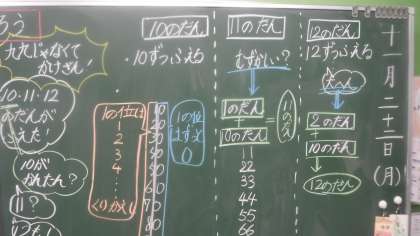 十一月二十二日(月)
九九じゃなくて
かけざん!
10・11・12
のだんが
ふえた!
10が
かんたん?
11?
10のだん
・10ずつふえる
1の位は
1
2
3
4
くりかえし
10
20
30
40
50
60
70
80
1の位
はずっと
0
11のだん
むずかしい?
1のだん
+
10のだん
=
11のだん
11
22
33
44
55
66
12のだん
12ずつふえる
2のだん
+
10のだん
12のだん